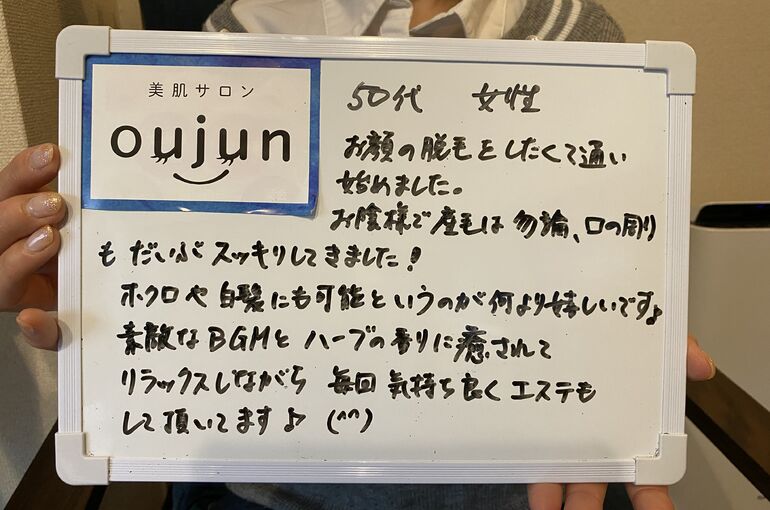 美肌サロン
oujun
50代 女性
お顔の脱毛をしたくて通い
始めました。
お陰様で産毛は勿論、口の周り
も だいぶ スッキリしてきました!
ホクロや白髪にも可能というのが何より嬉しいです♪
素敵なBGMと ハーブの香りに癒されて
リラックスしながら 毎回 気持ち良く エステも
して頂いてます♪ (^^)